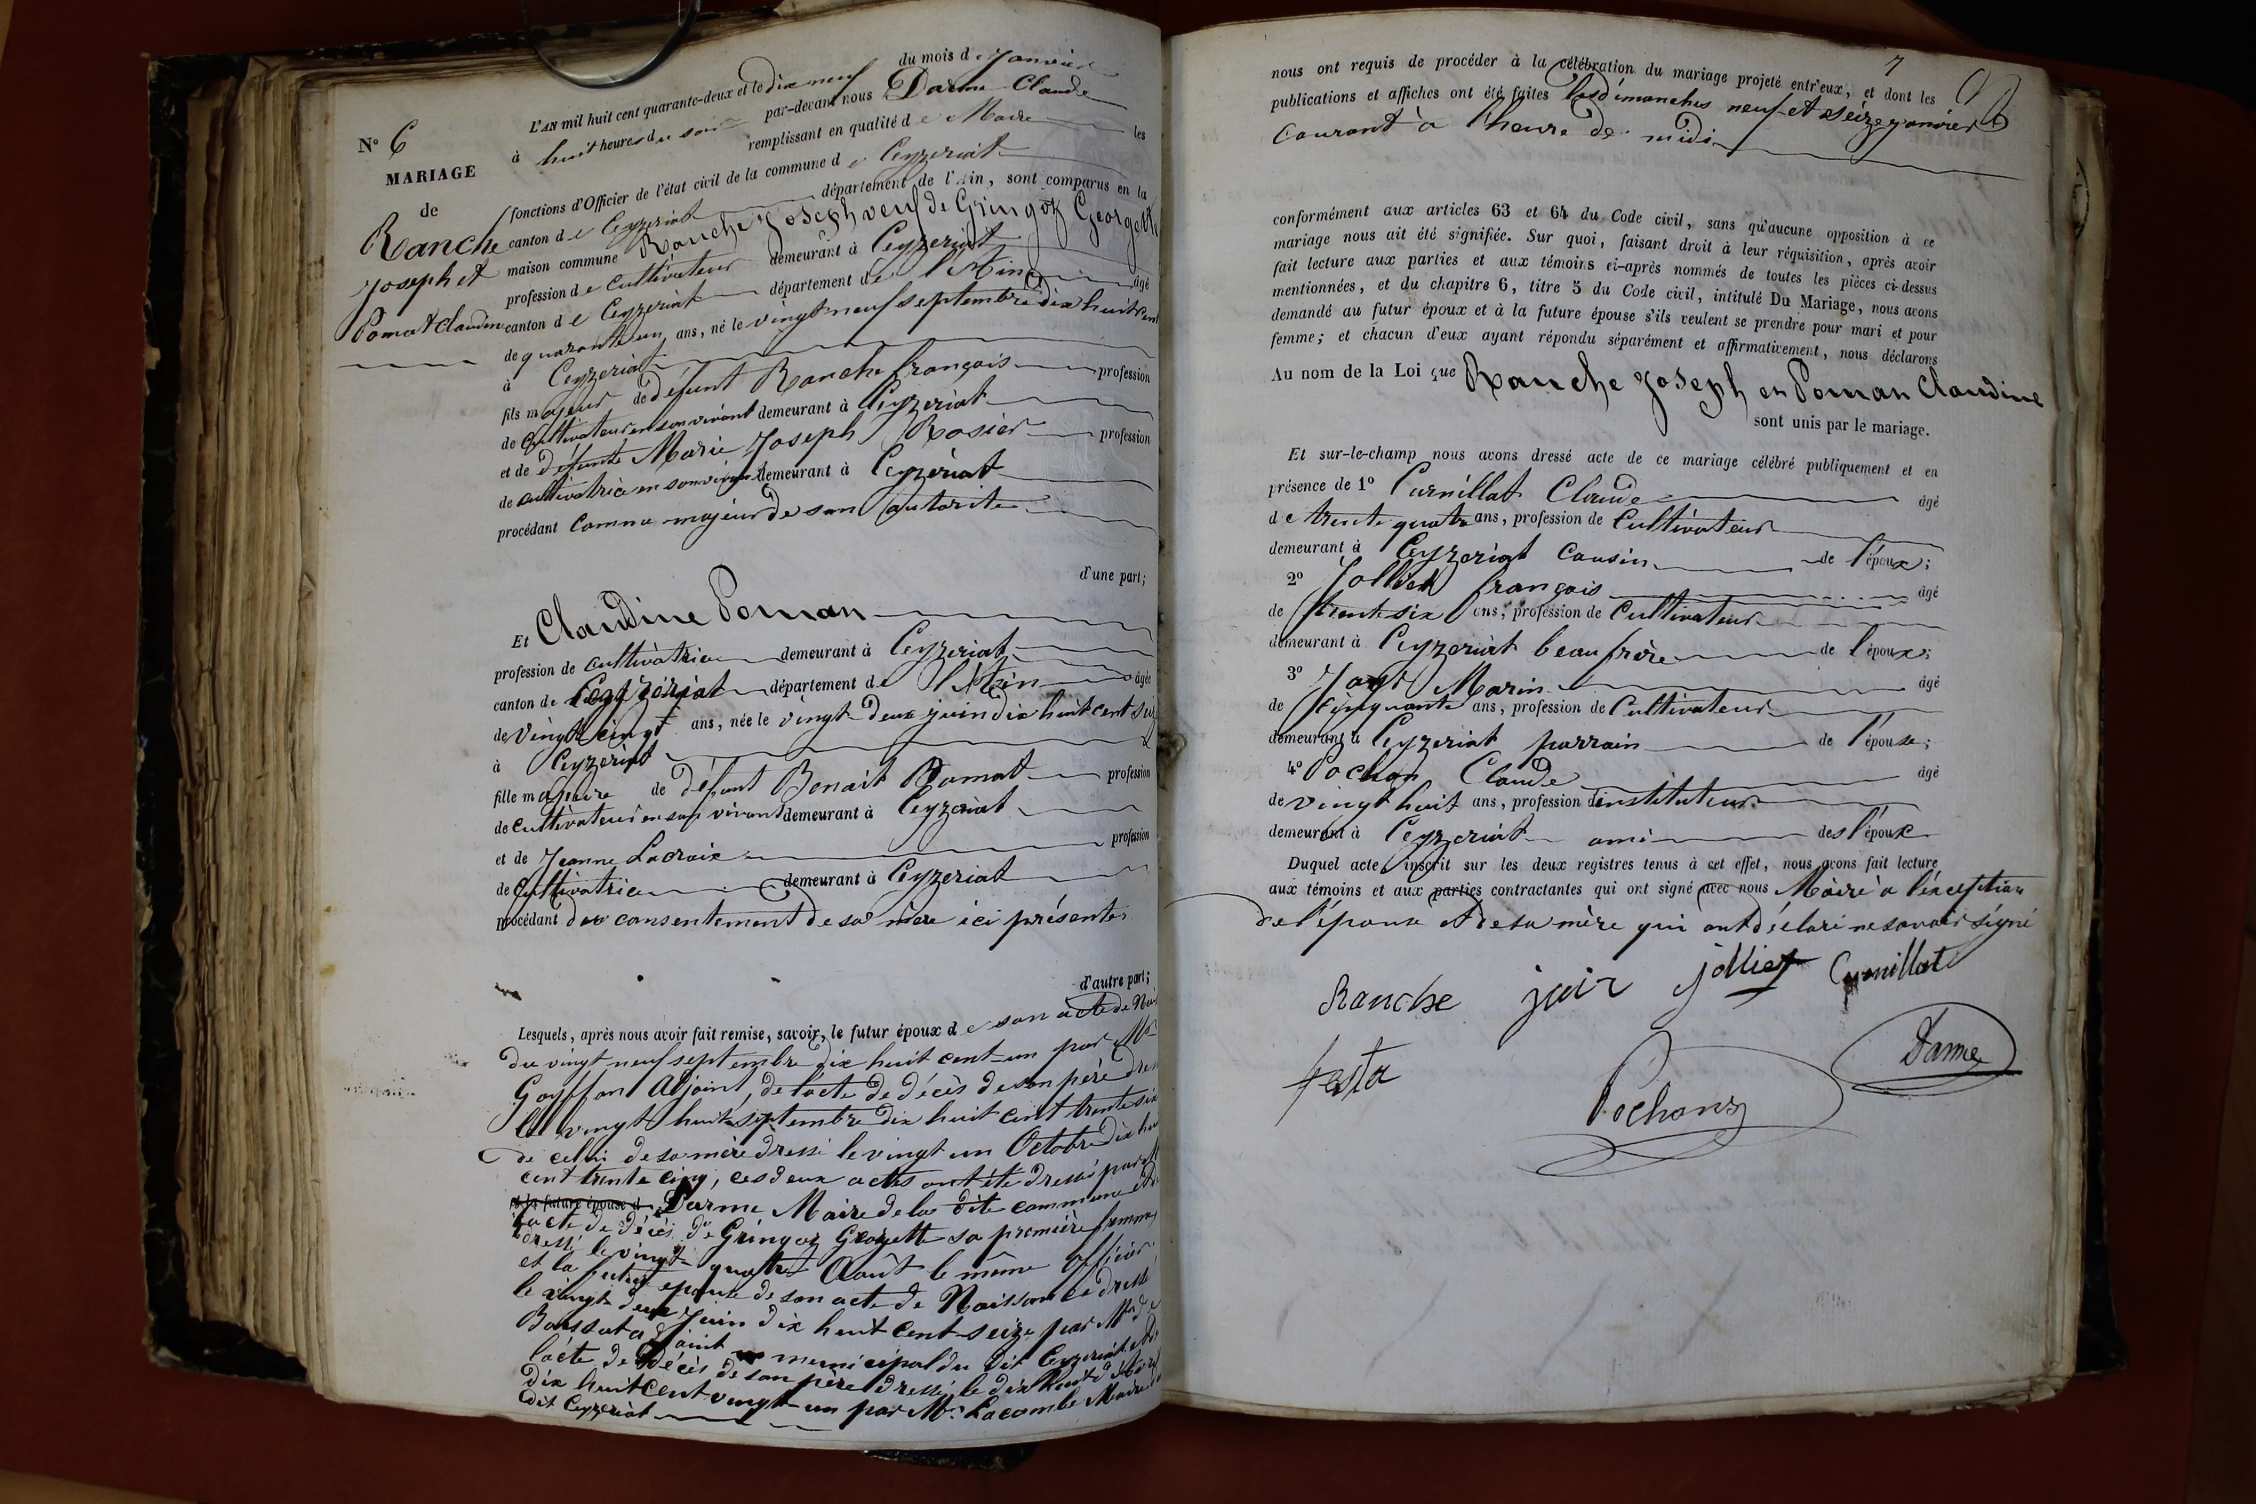 N° 6
MARIAGE
de
Ranche
Joseph et
Pomat Claudine
L'AN mil huit cent quarante-deux et le dix neuf du mois de Janvier
à huit heures du soir par-devant nous Darme Claude
remplissant en qualité de Maire les
fonctions d'Officier de l'état civil de la commune de Ceyzeriat
canton de Ceyzeriat département de l'Ain, sont comparus en la
maison commune Ranche Joseph veuf de Gringoz Georgette
profession de cultivateur demeurant à Ceyzeriat
canton de Ceyzeriat département de l'Ain âgé
de quarante un ans, né le vingt neuf septembre dix huit cent
à Ceyzeriat
fils majeur de défunt Ranche françois profession
de Cultivateur en son vivant demeurant à Ceyzeriat
et de défunte Marie Joseph Rosier profession
de cultivatrice en son vivant demeurant à Ceyzériat
procédant comme majeur de son autorité
d'une part;
Et Claudine Poman
profession de cultivatrice demeurant à Ceyzeriat
canton de Ceyzériat département de l'Ain âgée
de Vingt cinq ans, née le vingt deux juin dix huit cent seize
à Ceyzeriat
fille majeure de défunt Benoit Pomat profession
de cultivateur en son vivant demeurant à Ceyzeriat
et de Jeanne Lacroix profession
de Cultivatrice demeurant à Ceyzeriat
procédant du consentement de sa mère ici présente
d'autre part;
Lesquels, après nous avoir fait remise, savoir, le futur époux de son acte de
du vingt neuf septembre dix huit cent un par Mr
Goyffon Adjoint, de l'acte de décès de son père
le vingt huit septembre dix huit cent trente six
de celui de sa mère dressé le vingt un Octobre dix huit
cent trente cinq, ces deux actes ont été dressé par
et la future épouse d Darme Maire de la dite commune
l'acte de décès de Gringoz Georgette sa première femme
dressé le vingt quatre Août le même officier
et la future epouse de son acte de Naissance dressé
le vingt deux Juin dix huit cent seize par Mr
adjoint municipal du dit Ceyzeriat
l'acte de décès de son père dressé le dix huit
dix huit cent vingt-un par Mr Lacombe Maire
dit Ceyzeriat
7
nous ont requis de procéder à la célébration du mariage projeté entr'eux, et dont les
publications et affiches ont été faites les dimanches neuf et seize janvier
Courant à l'heure de midi
conformément aux articles 63 et 64 du Code civil, sans qu'aucune opposition à ce
mariage nous ait été signifiée. Sur quoi, faisant droit à leur réquisition, après avoir
fait lecture aux parties et aux témoins ci-après nommés de toutes les pièces ci-dessus
mentionnées, et du chapitre 6, titre 5 du Code civil, intitulé Du Mariage, nous avons
demandé au futur époux et à la future épouse s'ils veulent se prendre pour mari et pour
femme; et chacun d'eux ayant répondu séparément et affirmativement, nous déclarons
Au nom de la Loi que Ranche Joseph et Poman Claudine
sont unis par le mariage.
Et sur-le-champ nous avons dressé acte de ce mariage célébré publiquement et en
présence de 1° Curnillat Claude âgé
de trente quatre ans, profession de Cultivateur
demeurant à Ceyzeriat Cousin de l'époux;
2° Jolliet françois âgé
de trente six ans, profession de Cultivateur
demeurant à Ceyzeriat beau frère de l'époux;
3° Marin âgé
de cinquante ans, profession de Cultivateur
demeurant à Ceyzeriat parrain de l'épouse;
4° Pochon Claude âgé
de vingt huit ans, profession d'instituteur
demeurant à Ceyzeriat ami des l'époux
Duquel acte, inscrit sur les deux registres tenus à cet effet, nous avons fait lecture
aux témoins et aux parties contractantes qui ont signé avec nous Maire à l'exception
de l'épouse et de sa mère qui ont déclaré ne savoir signé
Ranche jolliet Curnillat
festa Pochon Darme